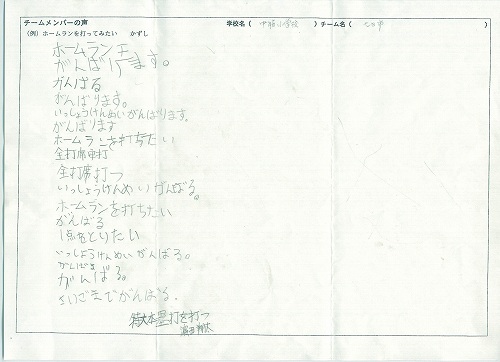 チームメンバーの声 学校名( 小学校 )チーム名( )
(例)ホームランを打ってみたい かずし
ホームラン王
がんばります。
がんばる
がんばります。
いっしょうけんめいがんばります。
がんばります
ホームランを打ちたい
全打席中打
全打席打つ
いっしょうけんめいがんばる。
ホームランを打ちたい
がんばる
1点をとりたい
いっしょうけんめいがんばる。
がんばる
がんばる。
さいごまでがんばる。
特大本塁打を打つ